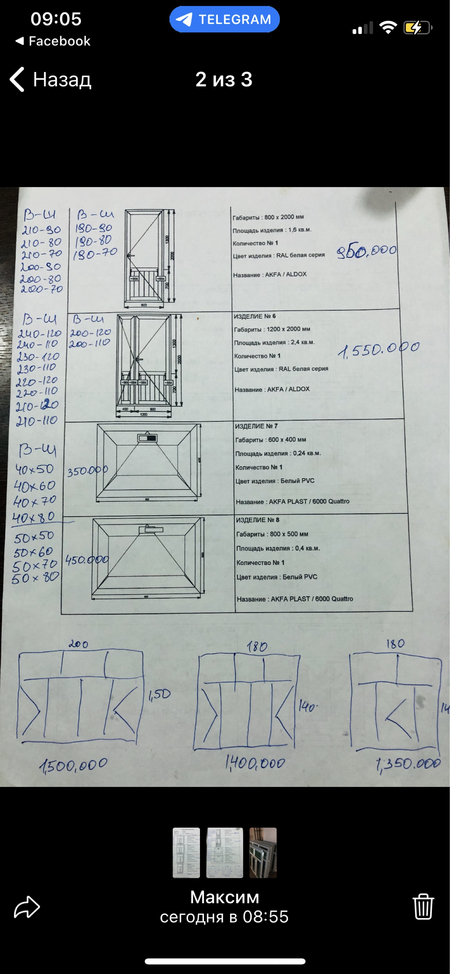 09:05
TELEGRAM
◀ Facebook
Назад
2 из 3
В-Ш
210-90
210-80
210-70
200-90
200-80
200-70
В-Ш
190-90
190-80
190-70
Габариты : 800 x 2000 мм
Площадь изделия : 1,6 кв.м.
Количество № 1
Цвет изделия : RAL белая серия
Название : AKFA / ALDOX
950.000
В-Ш
240-120
240-110
230-120
230-110
220-120
220-110
210-120
210-110
В-Ш
200-120
200-110
ИЗДЕЛИЕ № 6
Габариты : 1200 x 2000 мм
Площадь изделия : 2,4 кв.м.
Количество № 1
Цвет изделия : RAL белая серия
Название : AKFA / ALDOX
1,550.000
В-Ш
40x50
40x60
40x70
40x80
350.000
ИЗДЕЛИЕ № 7
Габариты : 600 x 400 мм
Площадь изделия : 0,24 кв.м.
Количество № 1
Цвет изделия : Белый PVC
Название : AKFA PLAST / 6000 Quattro
50x50
50x60
50x70
50x80
450.000
ИЗДЕЛИЕ № 8
Габариты : 800 x 500 мм
Площадь изделия : 0,4 кв.м.
Количество № 1
Цвет изделия : Белый PVC
Название : AKFA PLAST / 6000 Quattro
200
1,50
1500,000
180
140
1,400,000
180
14
1,350.000
Максим
сегодня в 08:55